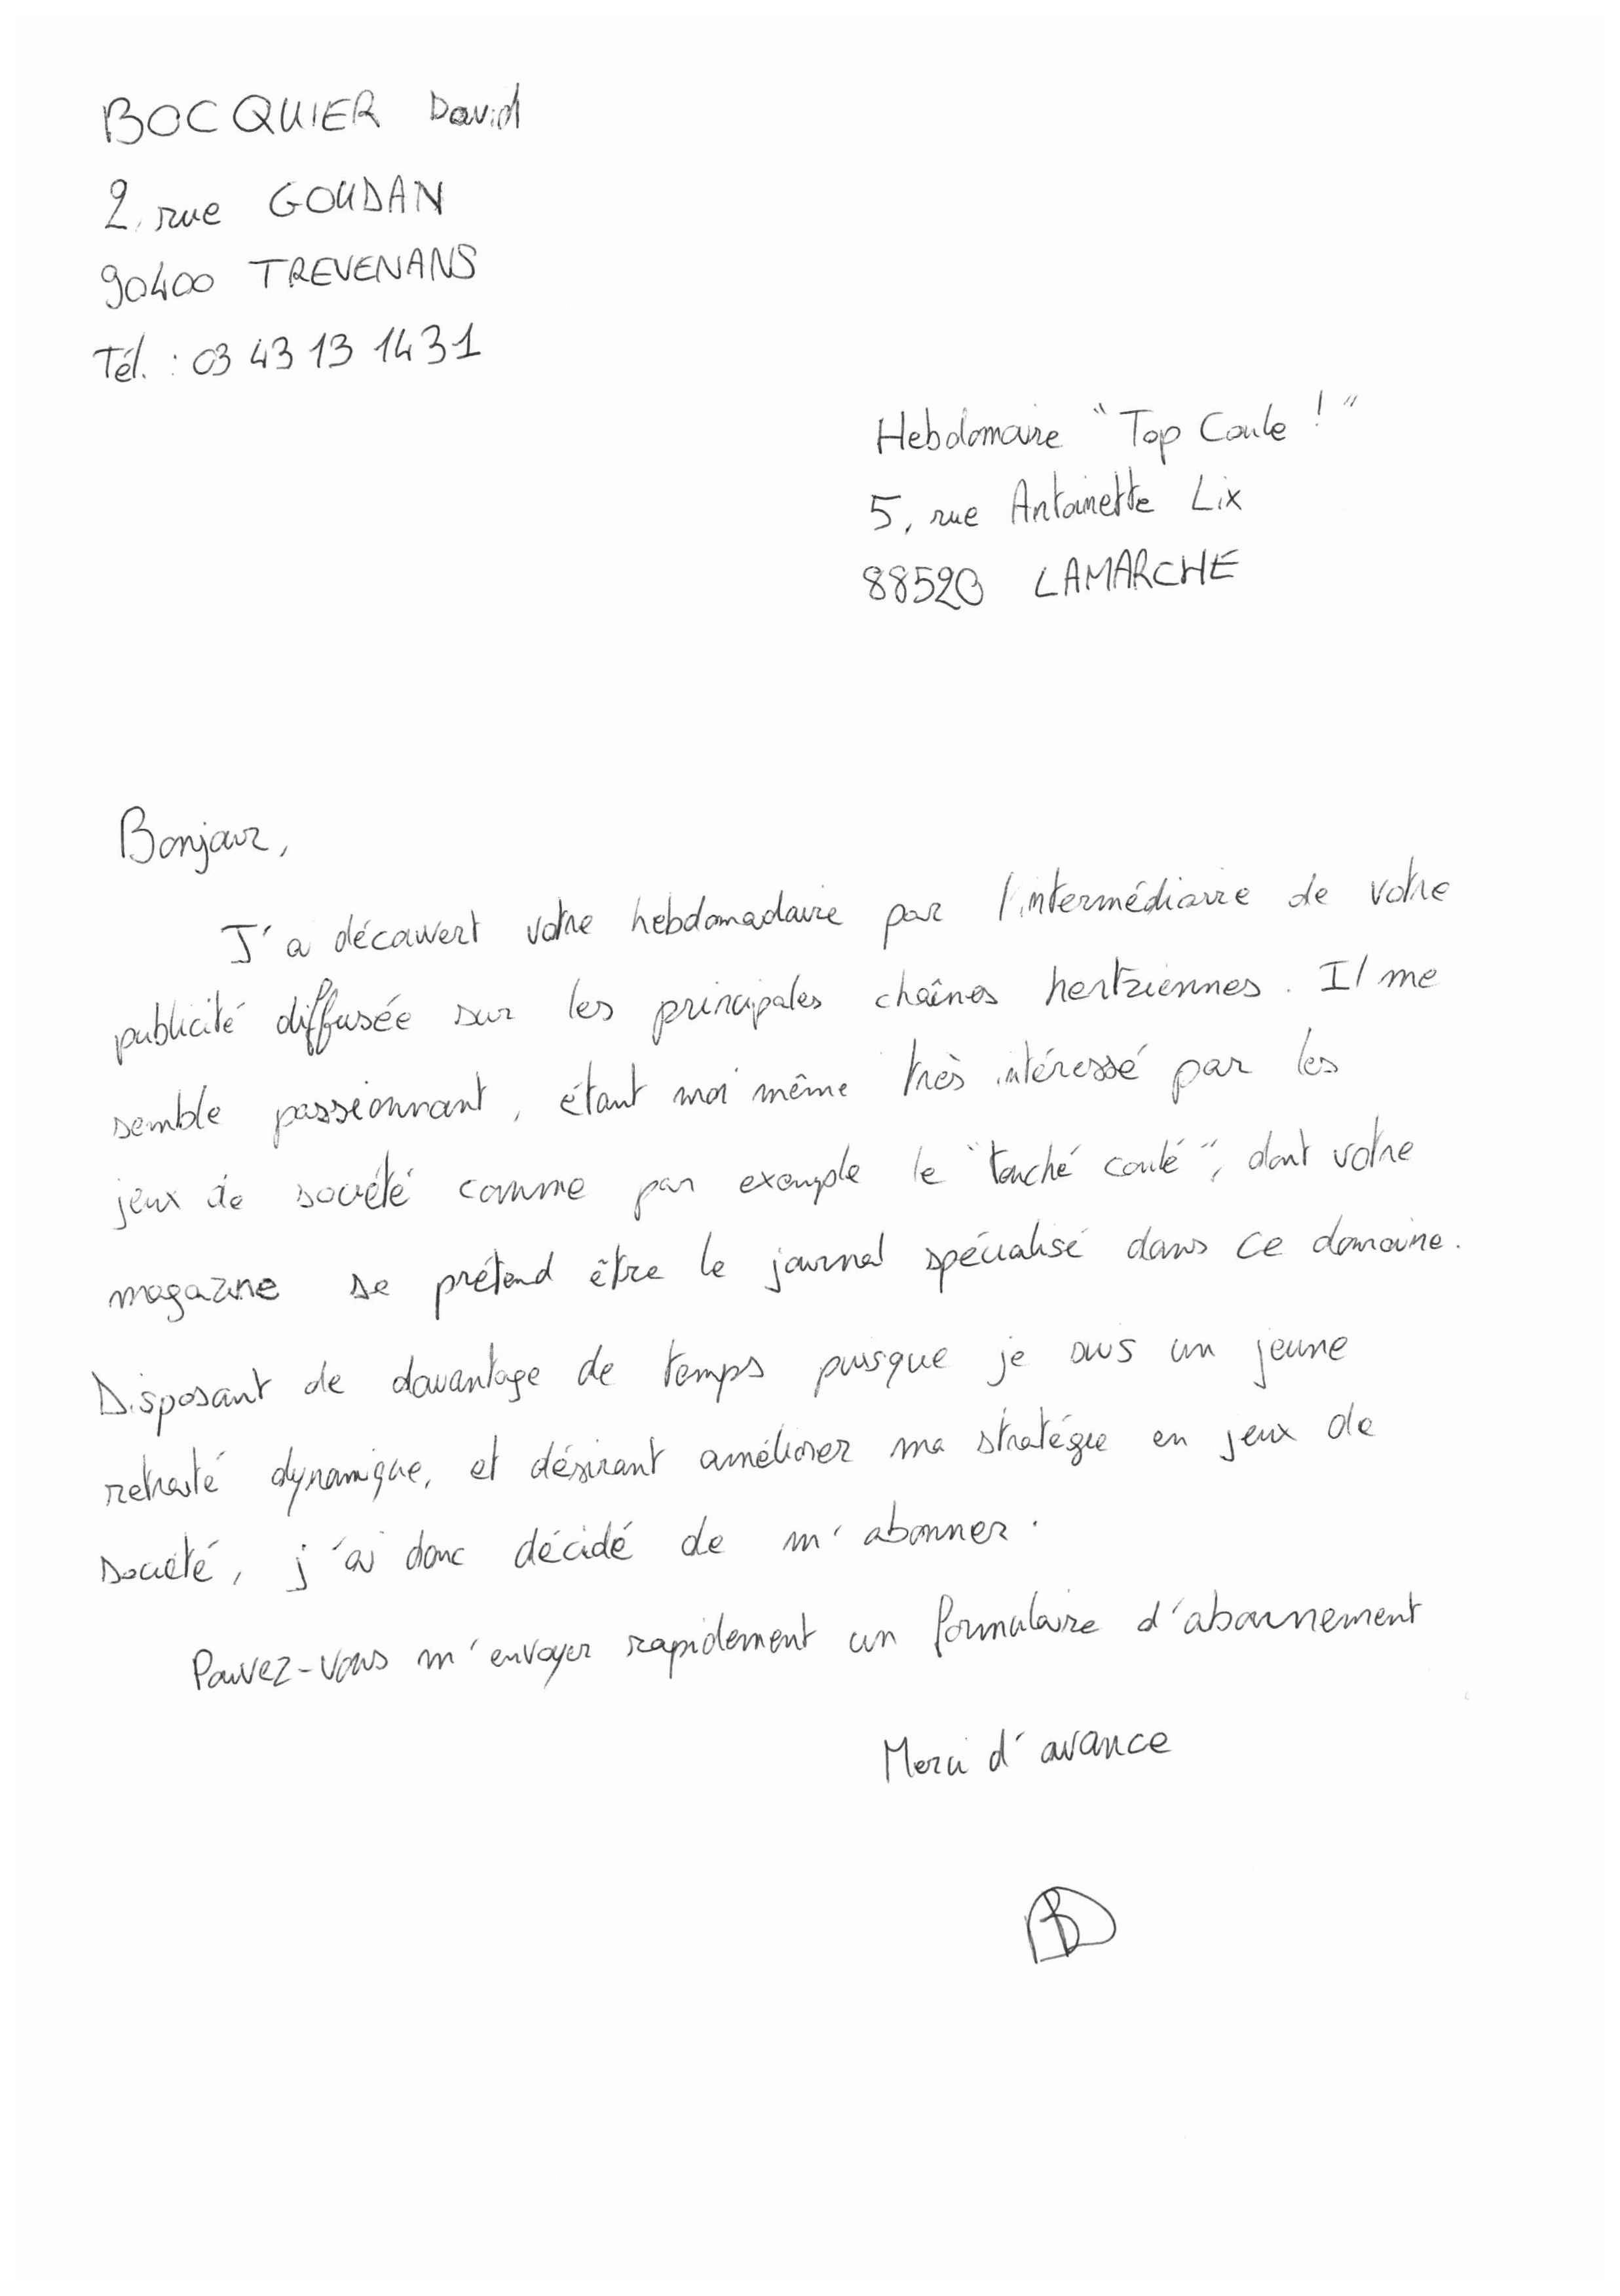 BOCQUIER David
2, rue GOUDAN
90400 TREVENANS
Tél. : 03 43 13 14 31
Hebdomaire "Top Coule !"
5, rue Antoinette Lix
88520 LAMARCHE
Bonjour,
J'a découvert votre hebdomadaire par l'intermédiaire de votre
publicité diffusée sur les principales chaînes hertziennes. Il me
semble passionnant, étant moi même très intéressé par les
jeux de société comme par exemple le "touché coulé", dont votre
magazine se prétend être le journal spécialisé dans ce domaine.
Disposant de davantage de temps puisque je suis un jeune
retraité dynamique, et désirant améliorer ma stratégie en jeux de
société, j'ai donc décidé de m'abonner.
Pouvez-vous m'envoyer rapidement un formulaire d'abonnement
Merci d'avance